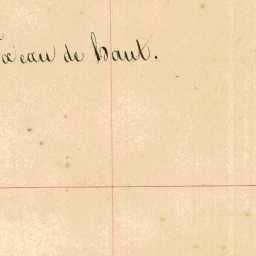 eau de haut.